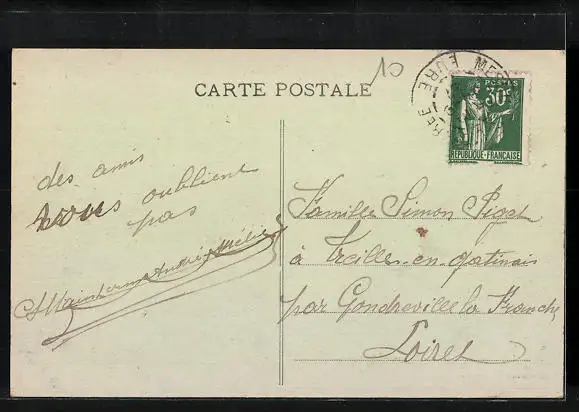 10
CARTE POSTALE
EURE
POSTES
30c
REPUBLIQUE-FRANÇAISE
des amis
vous oublient
pas
Famille Simon Piget
à Treilles-en-gatinais
par Gondreville la Franche
Loiret